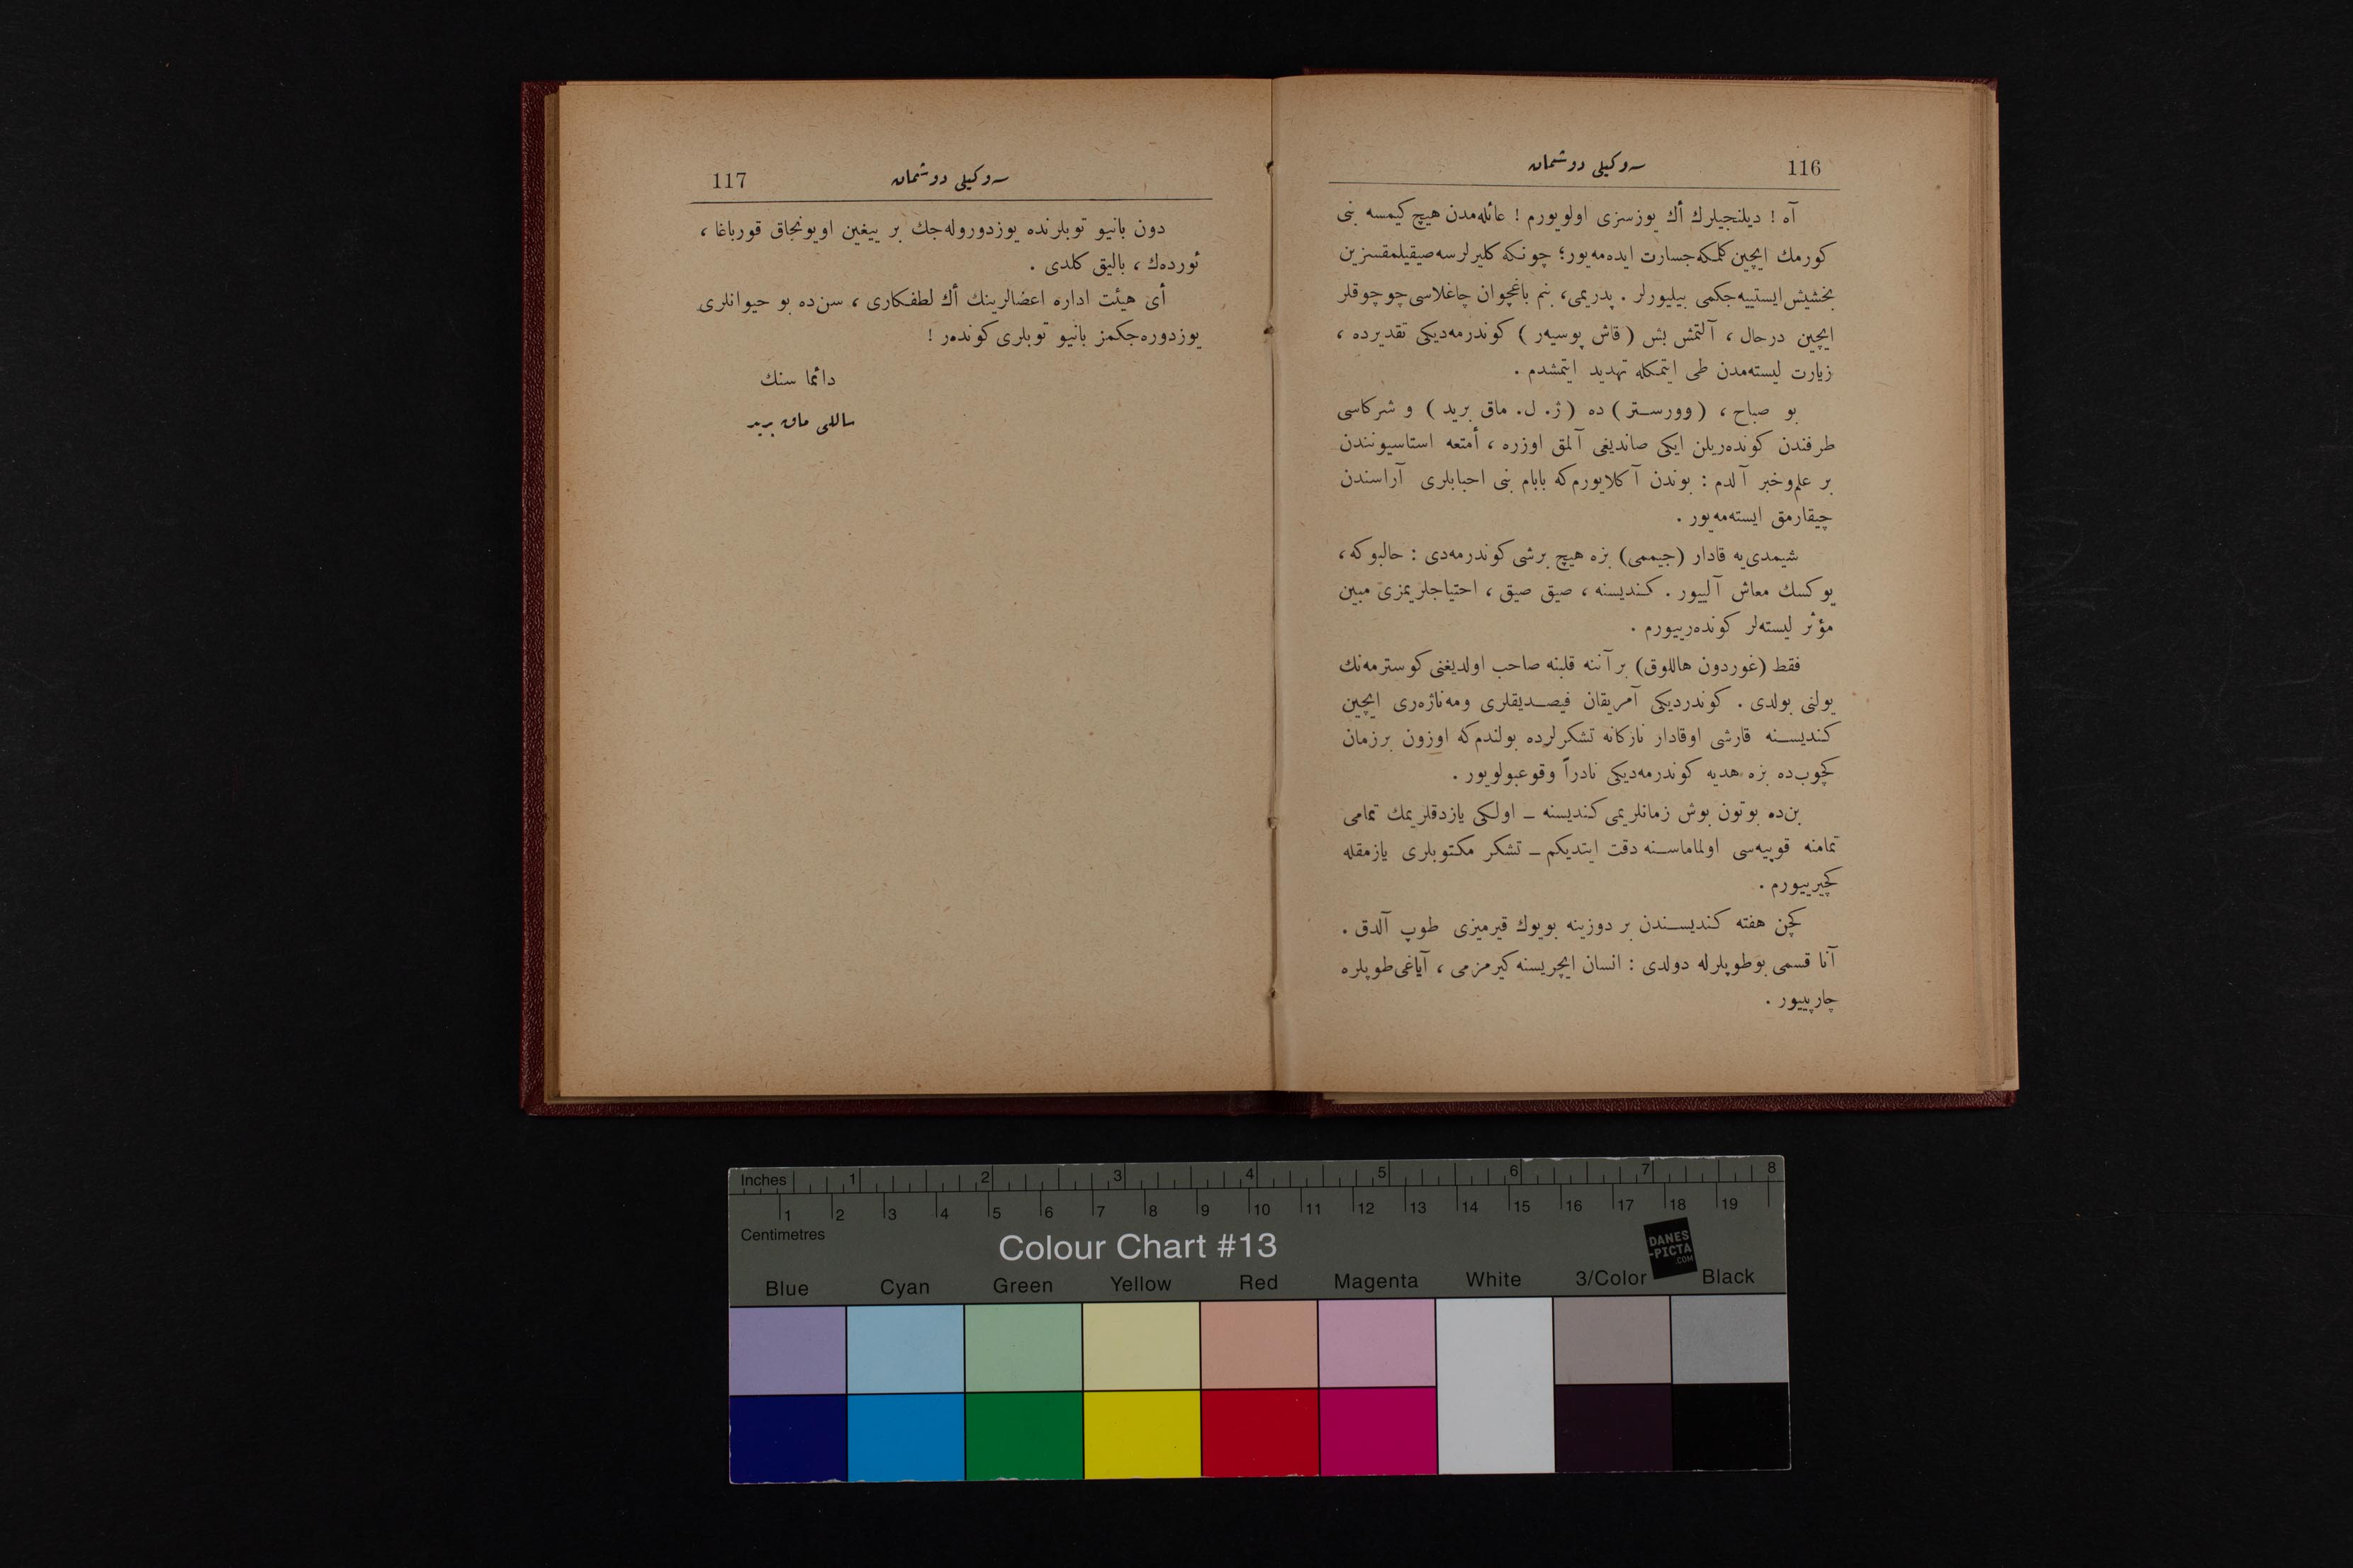 116
سه‌وكیلی دوشمان
آه ! دیلنجیلرك أك یوزسزی اولویورم ! عائله‌مدن هیچ كیمسه بنی
كورمك ایچین كلمكه جسارت ایده‌مه‌یور؛ چونكه كلیرلرسه صیقیلمقسزین
بخشیش ایستییه‌جكمی بیلیورلر . پدریمی، بنم باغچوان چاغلاسی چوجوقلر
ایچین درحال ، آلتمش بش ( قاش پوسیه‌ر ) كوندرمه‌دیكی تقدیرده ،
زیارت لیسته‌مدن طی ایتمكله تهدید ایتمشدم .
بو صباح ، ( وورستر ) ده ( ژ. ل. ماق برید ) و شركاسی
طرفندن كونده‌ریلن ایكی صاندیغی آلمق اوزره ، أمتعه استاسیونندن
بر علم‌وخبر آلدم : بوندن آكلایورم‌كه بابام بنی احبابلری آراسندن
چیقارمق ایسته‌مه‌یور .
شیمدی‌یه قادار (جیمی) بزه هیچ برشی كوندرمه‌دی : حالبوكه ،
یوكسك معاش آلییور . كندیسنه ، صیق صیق ، احتیاجلریمزی مبین
مؤثر لیسته‌لر كونده‌رییورم .
فقط (غوردون هاللوق) بر آننه قلبنه صاحب اولدیغنی كوسترمه‌نك
یولنی بولدی . كوندردیكی آمریقان فیصدیقلری ومه‌ناژه‌ری ایچین
كندیسنه قارشی اوقادار نازكانه تشكرلرده بولندم‌كه اوزون برزمان
كچوب‌ده بزه هدیه كوندرمه‌دیكی نادراً وقوعبولویور .
بن‌ده بوتون بوش زمانلریمی كندیسنه ـ اولكی یازدقلریمك تمامی
تمامنه قوپیه‌سی اولماماسنه دقت ایتدیكم ـ تشكر مكتوبلری یازمقله
كچیرییورم .
كچن هفته كندیسندن بر دوزینه بویوك قیرمیزی طوپ آلدق .
آنا قسمی بوطوپلرله دولدی : انسان ایچریسنه كیرمزمی ، آیاغی طوپلره
چارپییور .
117
سه‌وكیلی دوشمان
دون بانیو توبلرنده یوزدوروله‌جك بر ییغین اویونجاق قورباغا ،
ئورده‌ك ، بالیق كلدی .
أی هیئت اداره اعضالرینك أك لطفكاری ، سن‌ده بو حیوانلری
یوزدوره‌جكمز بانیو توبلری كونده‌ر !
دائما سنك
ساللی ماق برید
Inches 1 2 3 4 5 6 7 8
1 2 3 4 5 6 7 8 9 10 11 12 13 14 15 16 17 18 19
Centimetres
Colour Chart #13
DANES
-PICTA
.COM
Blue Cyan Green Yellow Red Magenta White 3/Color Black